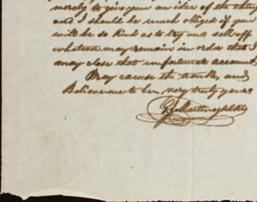 merely to give you an idea of the thing
and I should be much obliged if you
will be so kind as to try and sell off
whatever may remain in order that I
may close that unfortunate account.
Pray excuse the trouble, and
Believe me to be very truly yours